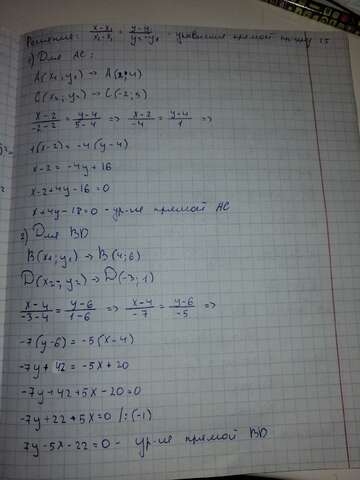 Решение: x-x₁/x₂-x₁ = y-y₁/y₂-y₁ - уравнение прямой
1) Для AC:
A(x₁; y₁) → A(2; 4)
C(x₂; y₂) → C(-2; 5)
x-2/-2-2 = y-4/5-4 => x-2/-4 = y-4/1 =>
1(x-2) = -4(y-4)
x-2 = -4y+16
x-2+4y-16=0
x+4y-18=0 - ур-ие прямой AC
2) Для BD
B(x₁; y₁) → B(4; 6)
D(x₂; y₂) → D(-3; 1)
x-4/-3-4 = y-6/1-6 => x-4/-7 = y-6/-5 =>
-7(y-6) = -5(x-4)
-7y+42 = -5x+20
-7y+42+5x-20=0
-7y+22+5x=0 /:(-1)
7y-5x-22=0 - ур-ие прямой BD